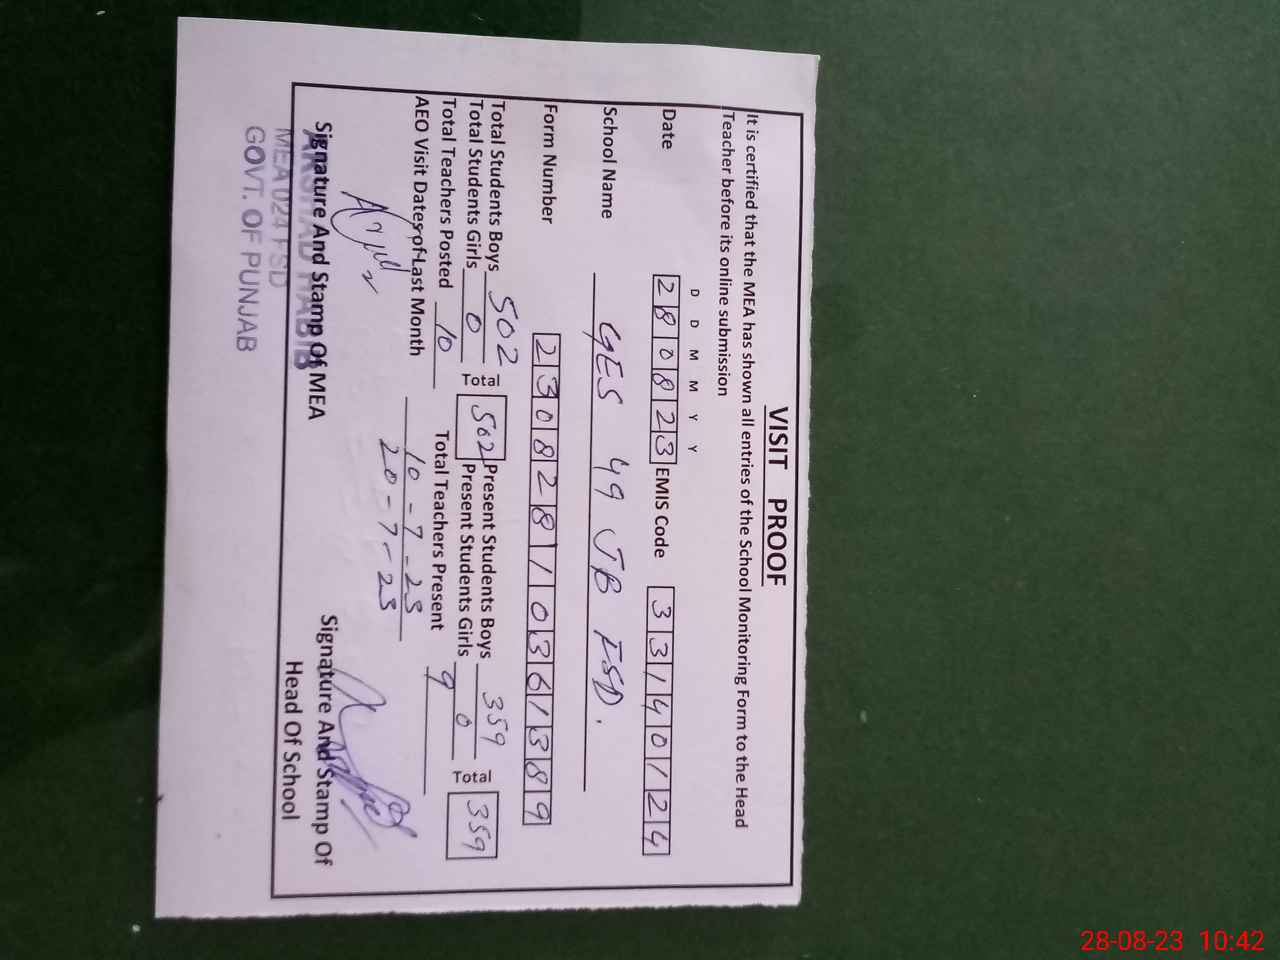 VISIT PROOF
It is certified that the MEA has shown all entries of the School Monitoring Form to the Head
Teacher before its online submission
D D M M Y Y
Date 280823 EMIS Code 33140124
School Name GES 49 JB FSD.
Form Number 23082810361389
Total Students Boys 502 Total 502 Present Students Boys 359 Total 359
Total Students Girls 0 Present Students Girls 0
Total Teachers Posted 10 Total Teachers Present 9
AEO Visit Dates of Last Month 10-7-23
20-7-23
Signature And Stamp Of MEA
ARSHAD HABIB
MEA 024 FSD
GOVT. OF PUNJAB
Signature And Stamp Of
Head Of School
28-08-23 10:42